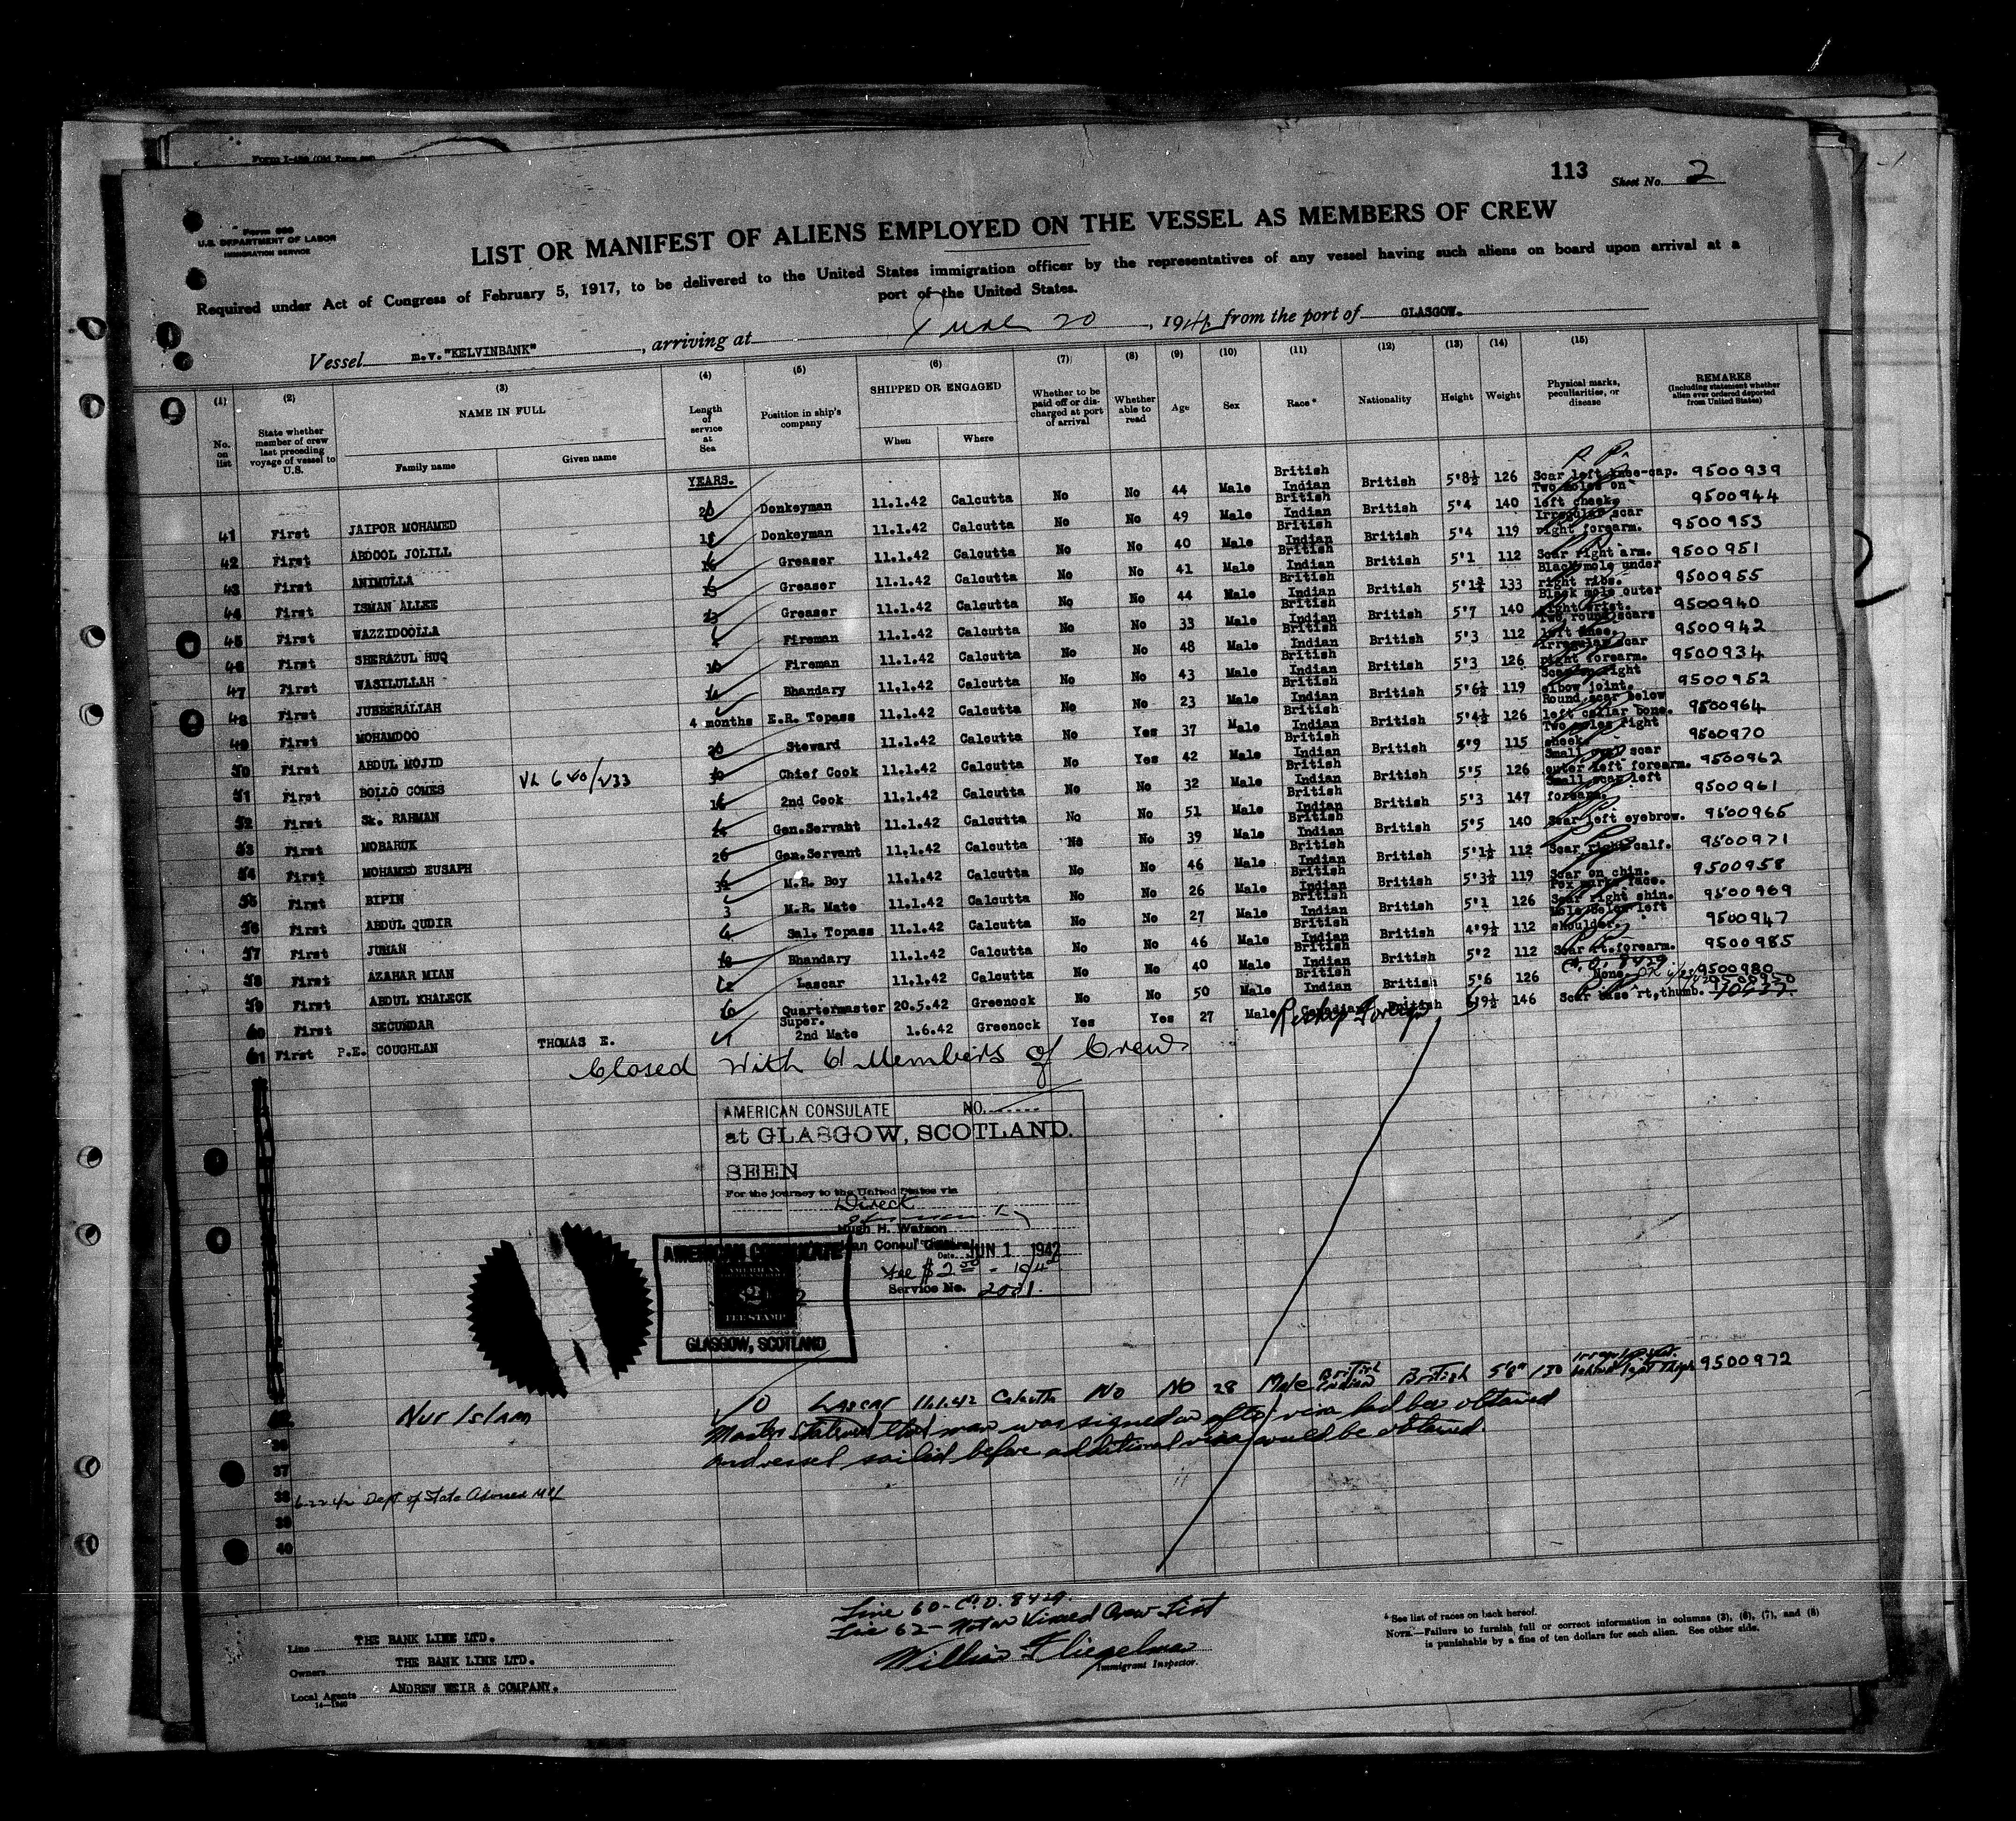 Form I-480 (Old Form 680)
113 Sheet No. 2
Form 680
U.S. DEPARTMENT OF LABOR
IMMIGRATION SERVICE
LIST OR MANIFEST OF ALIENS EMPLOYED ON THE VESSEL AS MEMBERS OF CREW
Required under Act of Congress of February 5, 1917, to be delivered to the United States immigration officer by the representatives of any vessel having such aliens on board upon arrival at a
port of the United States.
Vessel m.v."KELVINBANK", arriving at June 20, 194 from the port of GLASGOW.
(1) (2) (3) (4) (5) (6) (7) (8) (9) (10) (11) (12) (13) (14) (15)
No. on list
State whether member of crew last preceding voyage of vessel to U.S.
NAME IN FULL
Family name Given name
Length of service at Sea
Position in ship's company
SHIPPED OR ENGAGED
When Where
Whether to be paid off or discharged at port of arrival
Whether able to read
Age
Sex
Race*
Nationality
Height
Weight
Physical marks, peculiarities, or disease
REMARKS
(Including statement whether alien ever ordered deported from United States)
YEARS.
41 First JAIPOR MOHAMED 20 Donkeyman 11.1.42 Calcutta No No 44 Male British Indian British 5'8½ 126 Scar left knee-cap. 9500939
42 First ABDOOL JOLILL Donkeyman 11.1.42 Calcutta No No 49 Male British Indian British 5'4 140 Two moles on left cheek. 9500944
43 First ANIMULLA Greaser 11.1.42 Calcutta No No 40 Male British Indian British 5'4 119 Irregular scar right forearm. 9500953
44 First ISMAN ALLEE 15 Greaser 11.1.42 Calcutta No No 41 Male British Indian British 5'1 112 Scar right arm. 9500951
45 First WAZZIDOOLLA Greaser 11.1.42 Calcutta No No 44 Male British Indian British 5'1¾ 133 Black mole under right ribs. 9500955
46 First SHERAZUL HUQ Fireman 11.1.42 Calcutta No No 33 Male British Indian British 5'7 140 Black mole outer right wrist. 9500940
47 First WASILULLAH 10 Fireman 11.1.42 Calcutta No No 48 Male British Indian British 5'3 112 Two, round scars left knee. 9500942
48 First JUBBERALLAH Bhandary 11.1.42 Calcutta No No 43 Male British Indian British 5'3 126 Irregular scar right forearm. 9500934
49 First MOHAMDOO 4 months E.R. Topass 11.1.42 Calcutta No No 23 Male British Indian British 5'6½ 119 Scar on right elbow joint. 9500952
50 First ABDUL MOJID 20 Steward 11.1.42 Calcutta No Yes 37 Male British Indian British 5'4½ 126 Round scar below left collar bone. 9500964
51 First BOLLO COMES VL 640/V33 30 Chief Cook 11.1.42 Calcutta No Yes 42 Male British Indian British 5'9 115 Two moles right cheek. 9500970
52 First Sk. RAHMAN 2nd Cook 11.1.42 Calcutta No No 32 Male British Indian British 5'5 126 Small scar outer left forearm. 9500962
53 First MOBARUK Gen.Servant 11.1.42 Calcutta No No 51 Male British Indian British 5'3 147 Small scar left forearm. 9500961
54 First MOHAMED EUSAPH 26 Gen.Servant 11.1.42 Calcutta No No 39 Male British Indian British 5'5 140 Scar left eyebrow. 9500965
55 First BIPIN M.R. Boy 11.1.42 Calcutta No No 46 Male British Indian British 5'1½ 112 Scar right calf. 9500971
56 First ABDUL QUDIR 3 M.R. Mate 11.1.42 Calcutta No No 26 Male British Indian British 5'3½ 119 Scar on chin. Pox marks face. 9500958
57 First JUMAN Sal. Topass 11.1.42 Calcutta No No 27 Male British Indian British 5'1 126 Scar right shin. 9500969
58 First AZAHAR MIAN Bhandary 11.1.42 Calcutta No No 46 Male British Indian British 4'9½ 112 Mole below left shoulder. 9500947
59 First ABDUL KHALECK Lascar 11.1.42 Calcutta No No 40 Male British Indian British 5'2 112 Scar rt.forearm. 9500985
60 First SECUNDAR Quartermaster 20.5.42 Greenock No No 50 Male British Indian British 5'6 126 None. C.O. 8429 9500980
61 First P.E. COUGHLAN THOMAS E. Super. 2nd Mate 1.6.42 Greenock Yes Yes 27 Male Canadian British 5'9½ 146 Scar base rt,thumb.
Closed With 61 Members of Crew
AMERICAN CONSULATE NO.
at GLASGOW, SCOTLAND.
SEEN
For the journey to the United States via
Direct
Hugh H. Watson
American Consul General
Date JUN 1 1942
Fee $2.00
Service No. 2001.
AMERICAN CONSULATE
AMERICAN
2
FEE STAMP
GLASGOW, SCOTLAND
Nur Islam 10 Lascar 11.1.42 Calcutta No No 28 Male British Indian British 5'8" 130 behind left thigh 9500972
Master stated that man was signed on after visa had been obtained
and vessel sailed before additional visa could be obtained.
36
37
38 6-22-42 Dept of State Advised
39
40
Line 60 - C.O. 8429.
Line 62 - Not on Visaed Crew List
William Fliegelman
Immigrant Inspector.
Line THE BANK LINE LTD.
Owners THE BANK LINE LTD.
Local Agents ANDREW WEIR & COMPANY.
* See list of races on back hereof.
NOTE.—Failure to furnish full or correct information in columns (3), (6), (7), and (8)
is punishable by a fine of ten dollars for each alien. See other side.